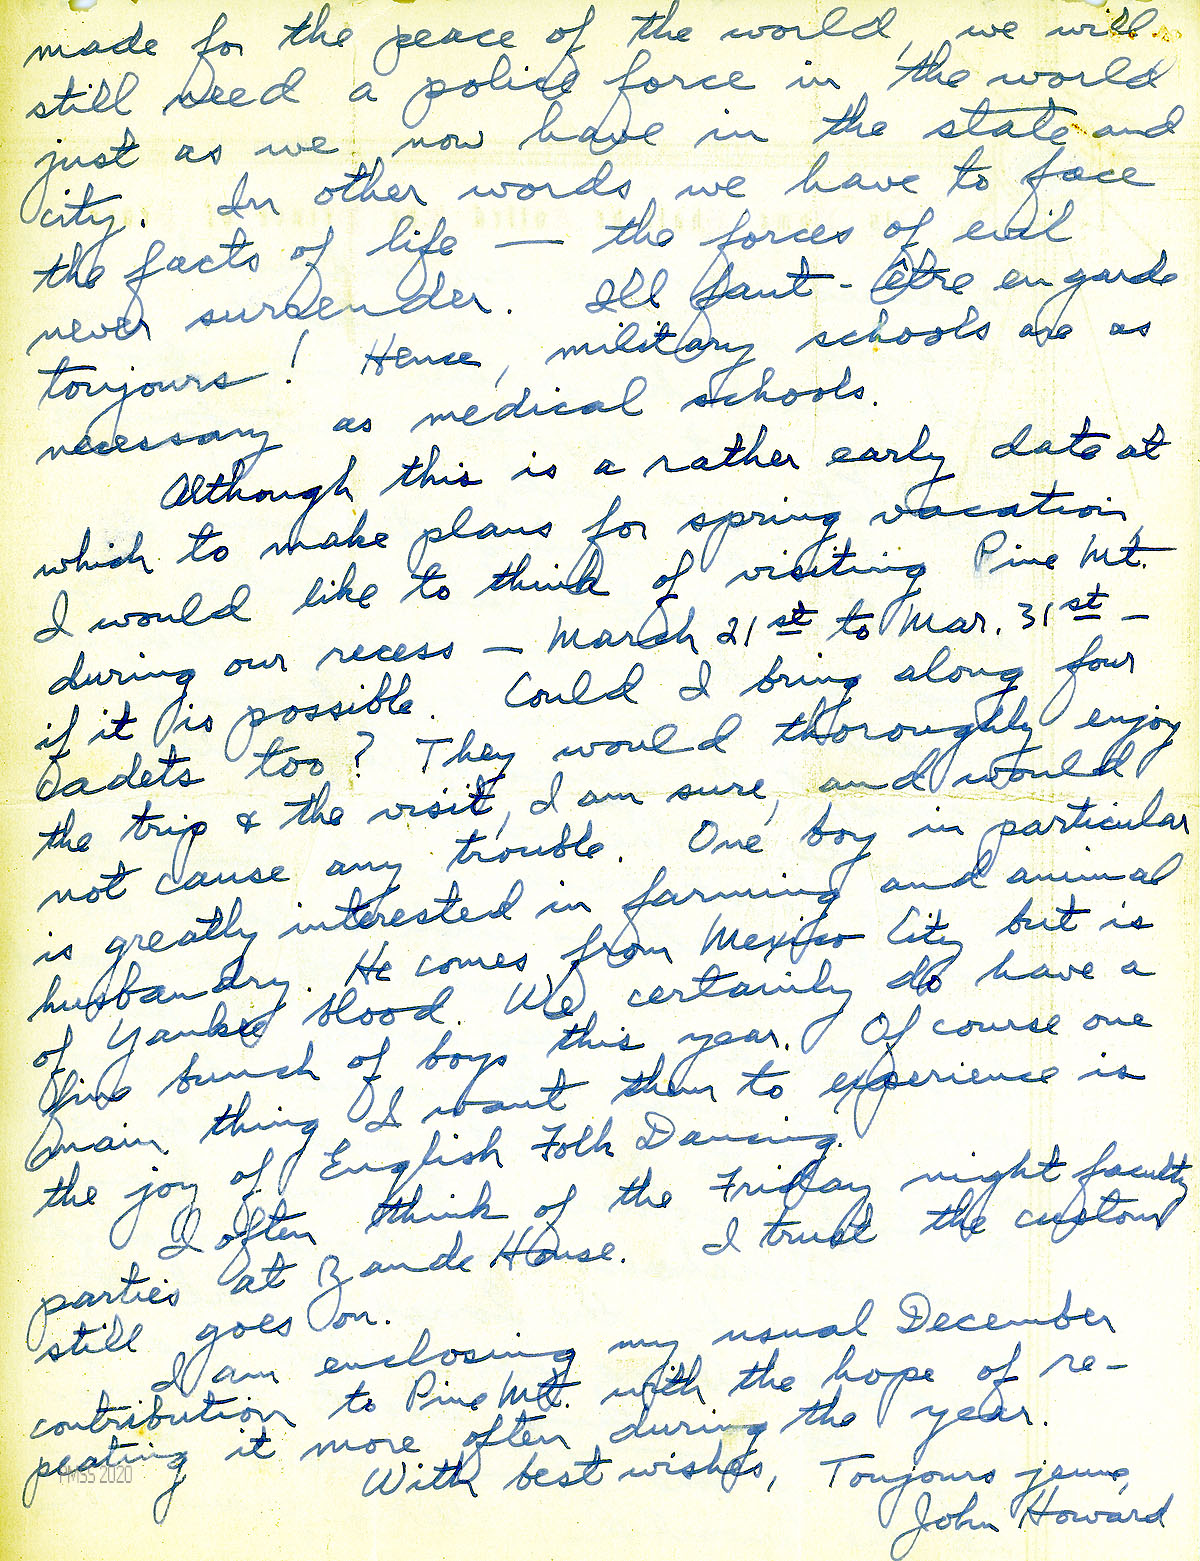 made for the peace of the world, we will
still need a police force in the world
just as we now have in the state and
city. In other words we have to face
the facts of life — the forces of evil
never surrender. Ill faut-être en garde
toujours! Hense, military schools are as
necessary as medical schools.
Although this is a rather early date at
which to make plans for spring vacation,
I would like to think of visiting Pine Mt.
during our recess — March 21st to Mar. 31st —
if it is possible. Could I bring along four
cadets too? They would thoroughly enjoy
the trip & the visit, I am sure, and would
not cause any trouble. One boy in particular
is greatly interested in farming and animal
husbandry. He comes from Mexico City but is
of Yankee blood. We certainly do have a
fine bunch of boys this year. Of course one
main thing I want them to experience is
the joy of English Folk Dancing.
I often think of the Friday night faculty
parties at Zande House. I trust the custom
still goes on.
I am enclosing my usual December
contribution to Pine Mt. with the hope of re-
peating it more often during the year.
With best wishes, Toujours jeune,
John Howard
PMSS 2020